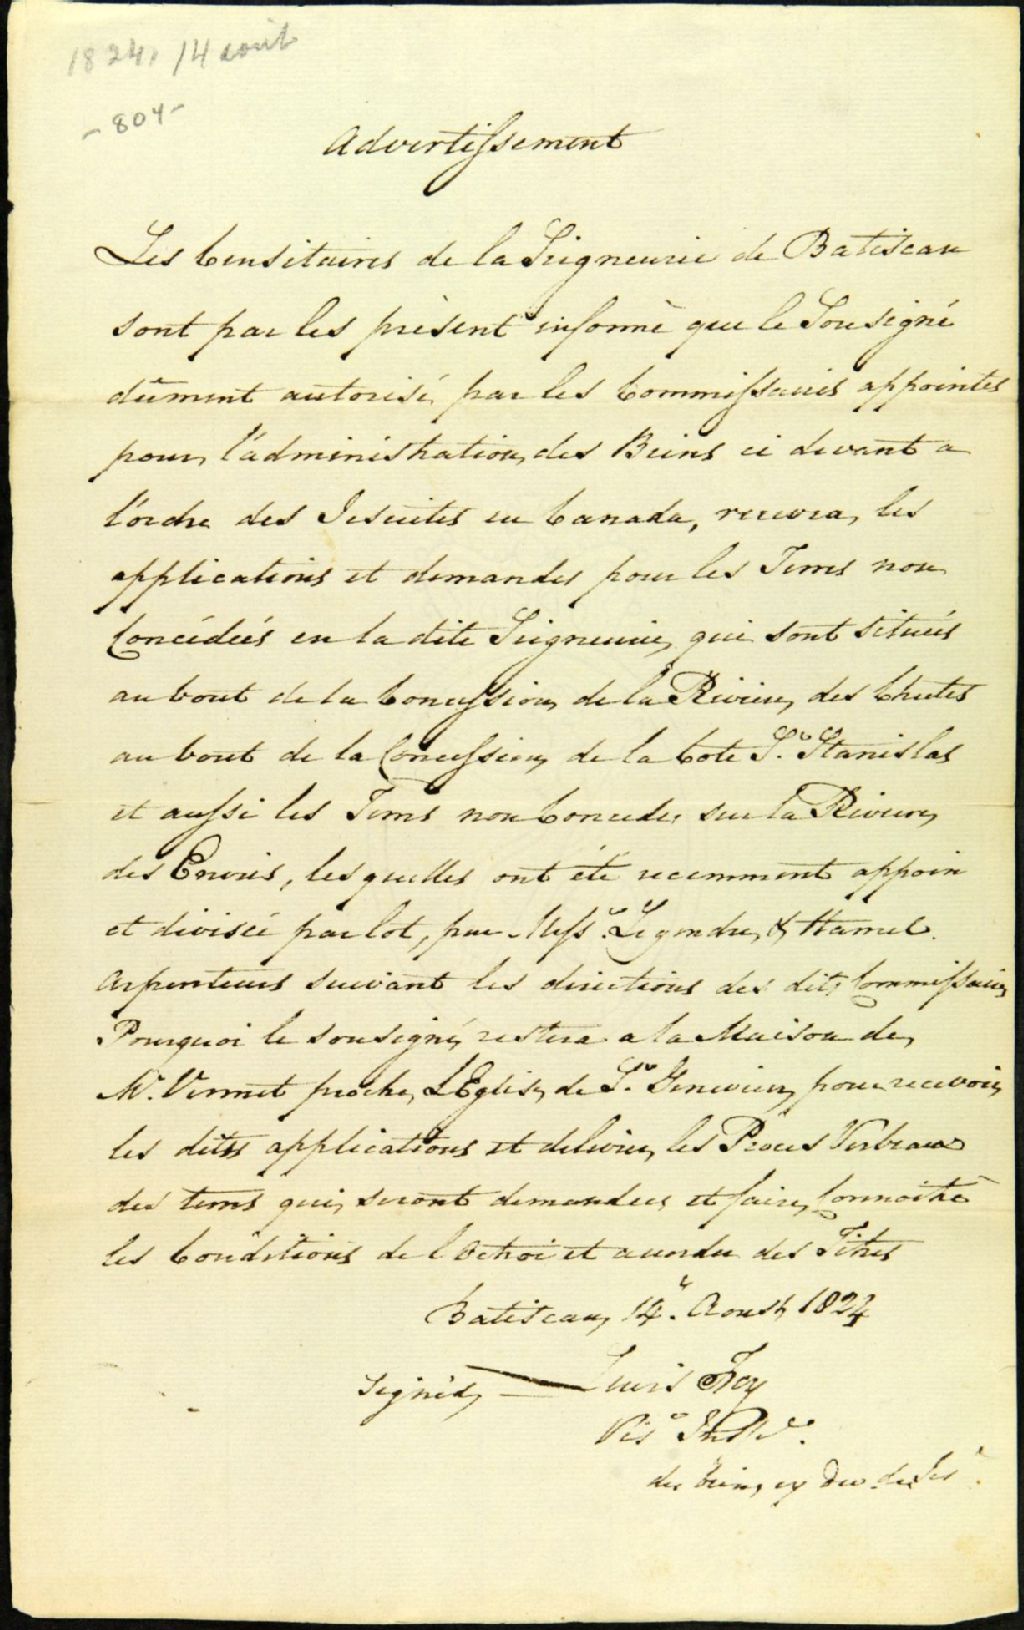 1824, 14 août
- 804 -
Advertissement
Les Censitaires de la Seigneurie de Batiscan
sont par les présent informé que le Sousigné
dûment autorisé par les Commissaires appointés
pour l'administration des Biens ci devant a
l'ordre des Jesuites en Canada, recevra les
applications et demandes pour les Terres non
Concédées en la dite Seigneurie qui sont situées
au bout de la Concession de la Riviere des Chutes
au bout de la Concession de la Cote St. Stanislas
et aussi les Terres non Concedes sur la Riviere
des Envies, lesquelles ont été recemment
et divisée par lot, par Messrs. Legendre & Hamel
Arpenteurs suivant les directions des dits Commissaires
Pourquoi le sousigné restera a la Maison de
Mr. Vermet proche L'Eglise de Ste. Genevieve pour recevoir
les dites applications et delivrer les Procès Verbeaux
des terres qui seront demandées et faire Connoitre
les Conditions de l'Octroi et accorder des Titres
Batiscan, 14. Aoust 1824
Signed, Louis Foy
des biens